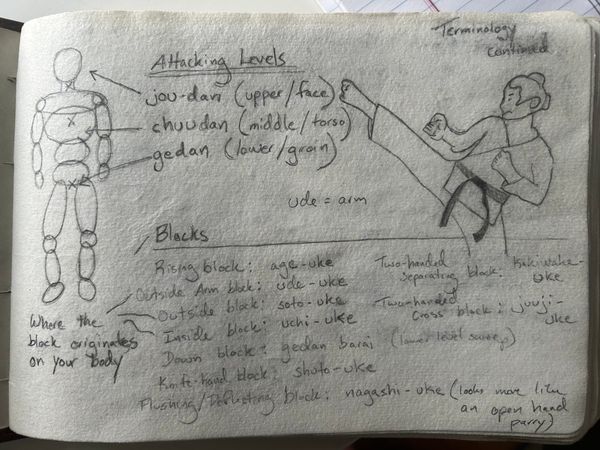 Terminology
continued
Attacking Levels
jou-dan (upper/face)
chuudan (middle/torso)
gedan (lower/groin)
ude = arm
Blocks
Rising block: age-uke
Outside Arm block: ude-uke
Outside block: soto-uke
Inside block: uchi-uke
Down block: gedan barai
Knife-hand block: shuto-uke
Flushing/Deflecting block: nagashi-uke (looks more like
an open hand
parry)
Two-handed
separating block: Kakiwake-
uke
Two-handed
Cross block: juuji-
uke
(lower level sweep)
Where the
block originates
on your body